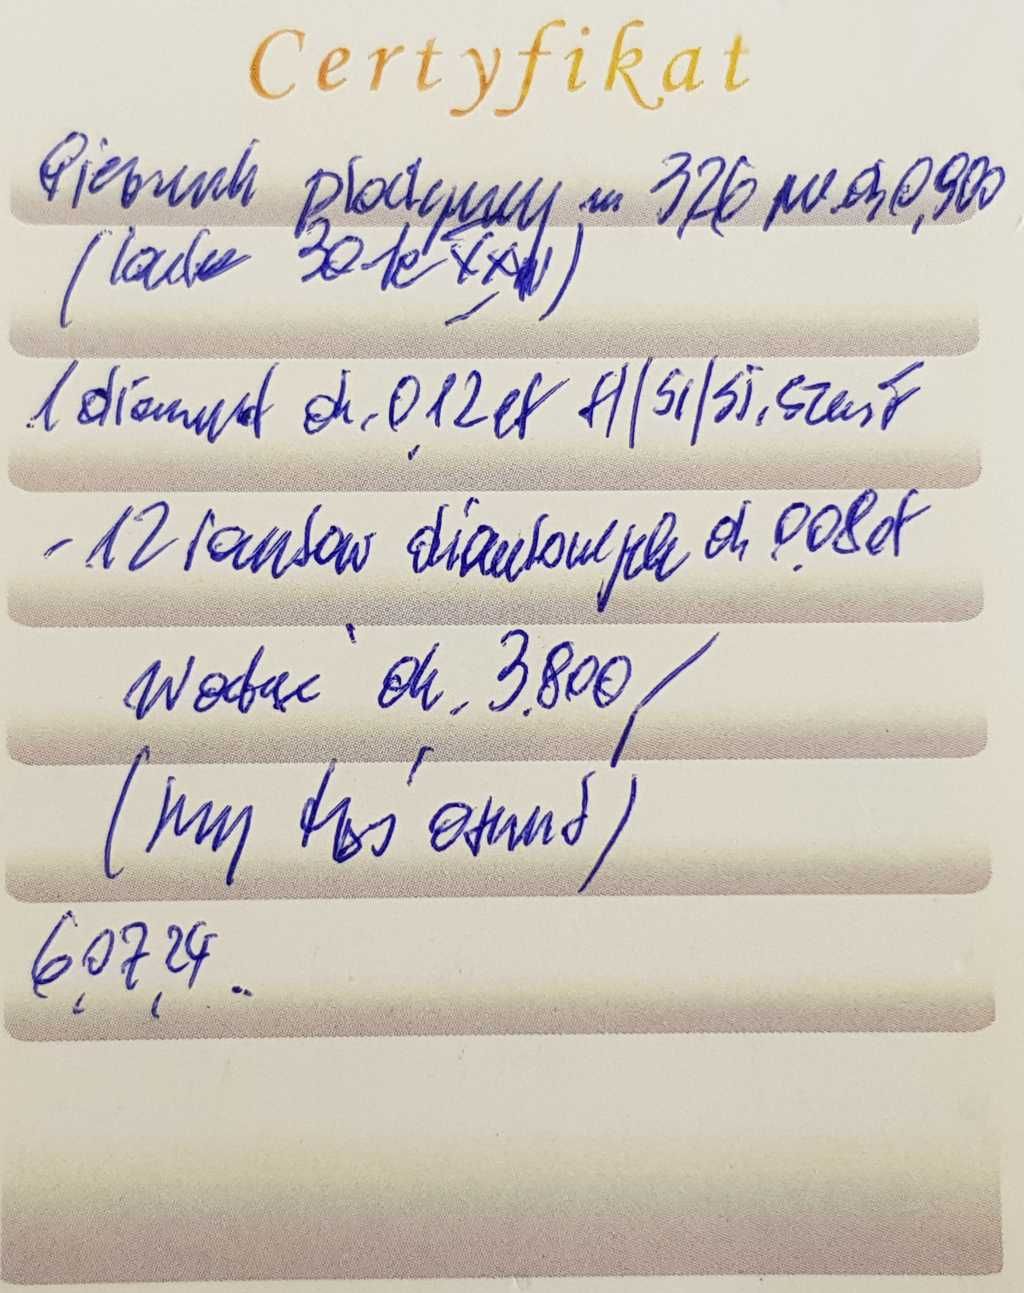 Certyfikat
Pierścionek platynowy m 3,26 pr. ok 0,900
(lata 30-te XX w)
1 diament ok. 0,12 ct H/Si/Si, szlif
- 12 rautów diamentowych ok 0,08 ct
Wartość ok. 3.800,
(trzy tyś osiemset)
6,07,24.